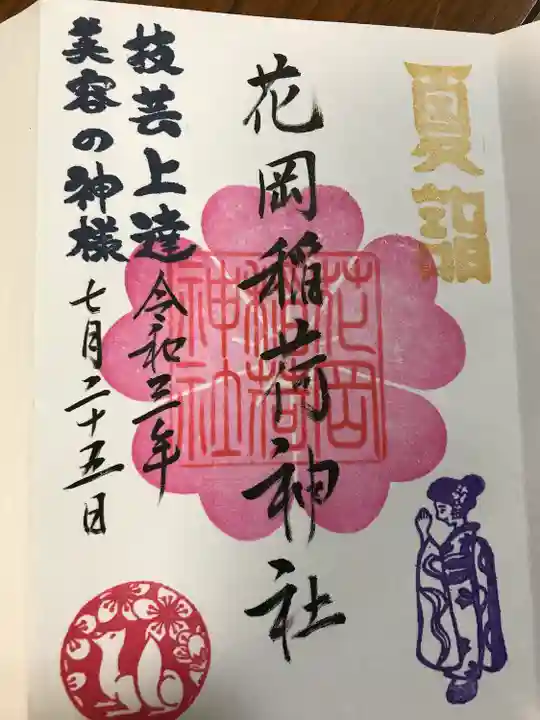 夏詣
花岡稲荷神社
花岡
稲荷
神社
技芸上達
美容の神様
令和三年
七月二十五日